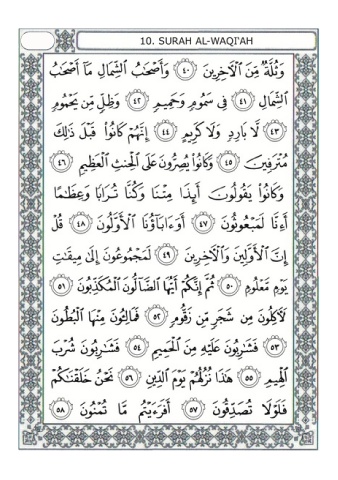 10. SURAH AL-WAQI'AH
وَثُلَّةٌ مِّنَ ٱلْأَخِرِينَ ٤٠ وَأَصْحَٰبُ ٱلشِّمَالِ مَآ أَصْحَٰبُ
ٱلشِّمَالِ ٤١ فِى سَمُومٍ وَحَمِيمٍ ٤٢ وَظِلٍّ مِّن يَحْمُومٍ
٤٣ لَّا بَارِدٍ وَلَا كَرِيمٍ ٤٤ إِنَّهُمْ كَانُوا۟ قَبْلَ ذَٰلِكَ
مُتْرَفِينَ ٤٥ وَكَانُوا۟ يُصِرُّونَ عَلَى ٱلْحِنثِ ٱلْعَظِيمِ ٤٦
وَكَانُوا۟ يَقُولُونَ أَئِذَا مِتْنَا وَكُنَّا تُرَابًا وَعِظَٰمًا
أَءِنَّا لَمَبْعُوثُونَ ٤٧ أَوَءَابَآؤُنَا ٱلْأَوَّلُونَ ٤٨ قُلْ
إِنَّ ٱلْأَوَّلِينَ وَٱلْأَخِرِينَ ٤٩ لَمَجْمُوعُونَ إِلَىٰ مِيقَٰتِ
يَوْمٍ مَّعْلُومٍ ٥٠ ثُمَّ إِنَّكُمْ أَيُّهَا ٱلضَّآلُّونَ ٱلْمُكَذِّبُونَ ٥١
لَأَكِلُونَ مِن شَجَرٍ مِّن زَقُّومٍ ٥٢ فَمَالِـُٔونَ مِنْهَا ٱلْبُطُونَ
٥٣ فَشَٰرِبُونَ عَلَيْهِ مِنَ ٱلْحَمِيمِ ٥٤ فَشَٰرِبُونَ شُرْبَ
ٱلْهِيمِ ٥٥ هَٰذَا نُزُلُهُمْ يَوْمَ ٱلدِّينِ ٥٦ نَحْنُ خَلَقْنَٰكُمْ
فَلَوْلَا تُصَدِّقُونَ ٥٧ أَفَرَءَيْتُم مَّا تُمْنُونَ ٥٨